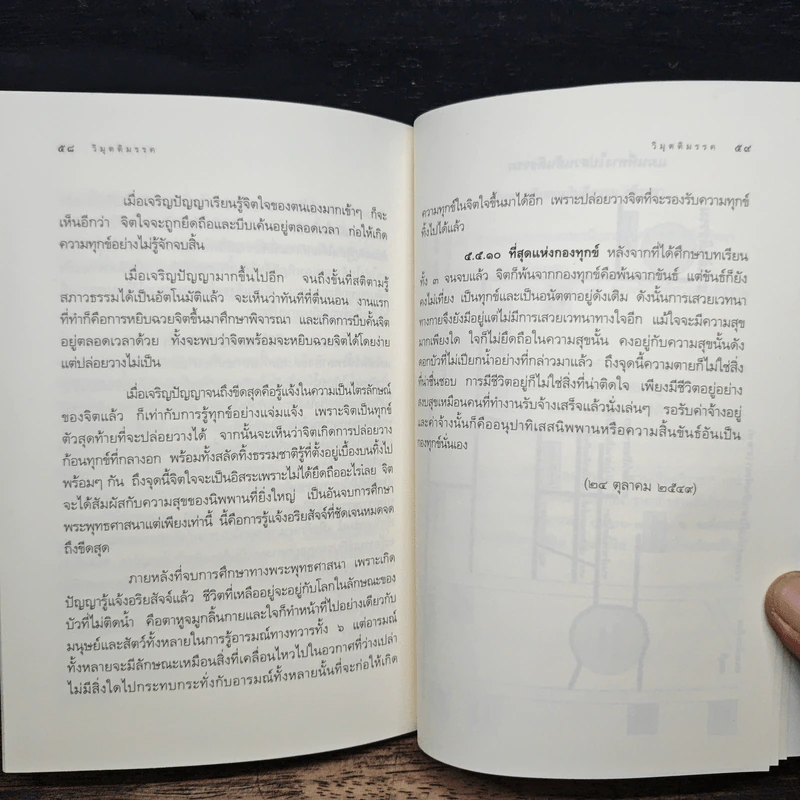 ๕๘ วิมุตติมรรค
เมื่อเจริญปัญญาเรียนรู้จิตใจของตนเองมากเข้าๆ ก็จะ
เห็นอีกว่า จิตใจจะถูกยึดถือและบีบเค้นอยู่ตลอดเวลา ก่อให้เกิด
ความทุกข์อย่างไม่รู้จักจบสิ้น
เมื่อเจริญปัญญามากขึ้นไปอีก จนถึงขั้นที่สติตามรู้
สภาวธรรมได้เป็นอัตโนมัติแล้ว จะเห็นว่าทันทีที่ตื่นนอน งานแรก
ที่ทำก็คือการหยิบฉวยจิตขึ้นมาศึกษาพิจารณา และเกิดการบีบคั้นจิต
อยู่ตลอดเวลาด้วย ทั้งจะพบว่าจิตพร้อมจะหยิบฉวยจิตได้โดยง่าย
แต่ปล่อยวางไม่เป็น
เมื่อเจริญปัญญาจนถึงขีดสุดคือรู้แจ้งในความเป็นไตรลักษณ์
ของจิตแล้ว ก็เท่ากับการรู้ทุกข์อย่างแจ่มแจ้ง เพราะจิตเป็นทุกข์
ตัวสุดท้ายที่จะปล่อยวางได้ จากนั้นจะเห็นว่าจิตเกิดการปล่อยวาง
ก้อนทุกข์ที่กลางอก พร้อมทั้งสลัดทิ้งธรรมชาติรู้ที่ตั้งอยู่เบื้องบนทิ้งไป
พร้อมๆ กัน ถึงจุดนี้จิตใจจะเป็นอิสระเพราะไม่ได้ยึดถืออะไรเลย จิต
จะได้สัมผัสกับความสุขของนิพพานที่ยิ่งใหญ่ เป็นอันจบการศึกษา
พระพุทธศาสนาแต่เพียงเท่านี้ นี้คือการรู้แจ้งอริยสัจจ์ที่ชัดเจนหมดจด
ถึงขีดสุด
ภายหลังที่จบการศึกษาทางพระพุทธศาสนา เพราะเกิด
ปัญญารู้แจ้งอริยสัจจ์แล้ว ชีวิตที่เหลืออยู่จะอยู่กับโลกในลักษณะของ
บัวที่ไม่ติดน้ำ คือตาหูจมูกลิ้นกายและใจก็ทำหน้าที่ไปอย่างเดียวกับ
มนุษย์และสัตว์ทั้งหลายในการรู้อารมณ์ทางทวารทั้ง ๖ แต่อารมณ์
ทั้งหลายจะมีลักษณะเหมือนสิ่งที่เคลื่อนไหวไปในอวกาศที่ว่างเปล่า
ไม่มีสิ่งใดไปกระทบกระทั่งกับอารมณ์ทั้งหลายนั้นที่จะก่อให้เกิด
วิมุตติมรรค ๕๙
ความทุกข์ในจิตใจขึ้นมาได้อีก เพราะปล่อยวางจิตที่จะรองรับความทุกข์
ทิ้งไปได้แล้ว
๕.๔.๑๐ ที่สุดแห่งกองทุกข์ หลังจากที่ได้ศึกษาบทเรียน
ทั้ง ๓ จนจบแล้ว จิตก็พ้นจากกองทุกข์คือพ้นจากขันธ์ แต่ขันธ์ก็ยัง
คงไม่เที่ยง เป็นทุกข์และเป็นอนัตตาอยู่ดังเดิม ดังนั้นการเสวยเวทนา
ทางกายจึงยังมีอยู่แต่ไม่มีการเสวยเวทนาทางใจอีก แม้ใจจะมีความสุข
มากเพียงใด ใจก็ไม่ยึดถือในความสุขนั้น คงอยู่กับความสุขนั้นดัง
ดอกบัวที่ไม่เปียกน้ำอย่างที่กล่าวมาแล้ว ถึงจุดนี้ความตายก็ไม่ใช่สิ่ง
ที่น่าชื่นชอบ การมีชีวิตอยู่ก็ไม่ใช่สิ่งที่น่าติดใจ เพียงมีชีวิตอยู่อย่าง
สงบสุขเหมือนคนที่ทำงานรับจ้างเสร็จแล้วนั่งเล่นๆ รอรับค่าจ้างอยู่
และค่าจ้างนั้นก็คืออนุปาทิเสสนิพพานหรือความสิ้นขันธ์อันเป็น
กองทุกข์นั่นเอง
(๒๔ ตุลาคม ๒๕๔๙)